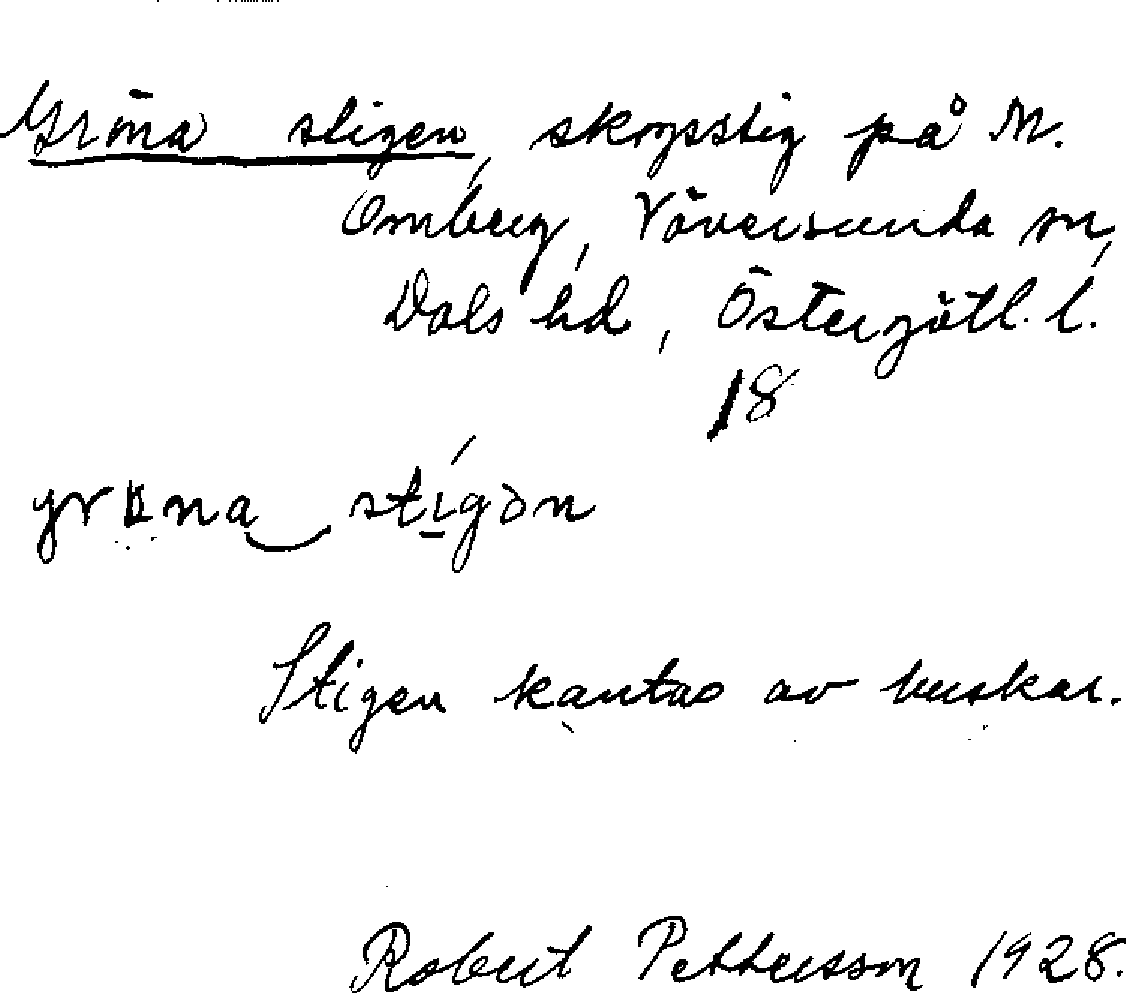 Gröna stigen, skogsstig på M.
Omberg, Väversunda sn,
Dals hd, Östergötl. l.
18
stígòn
Stigen kantas av buskar.
Robert Pettersson 1928.